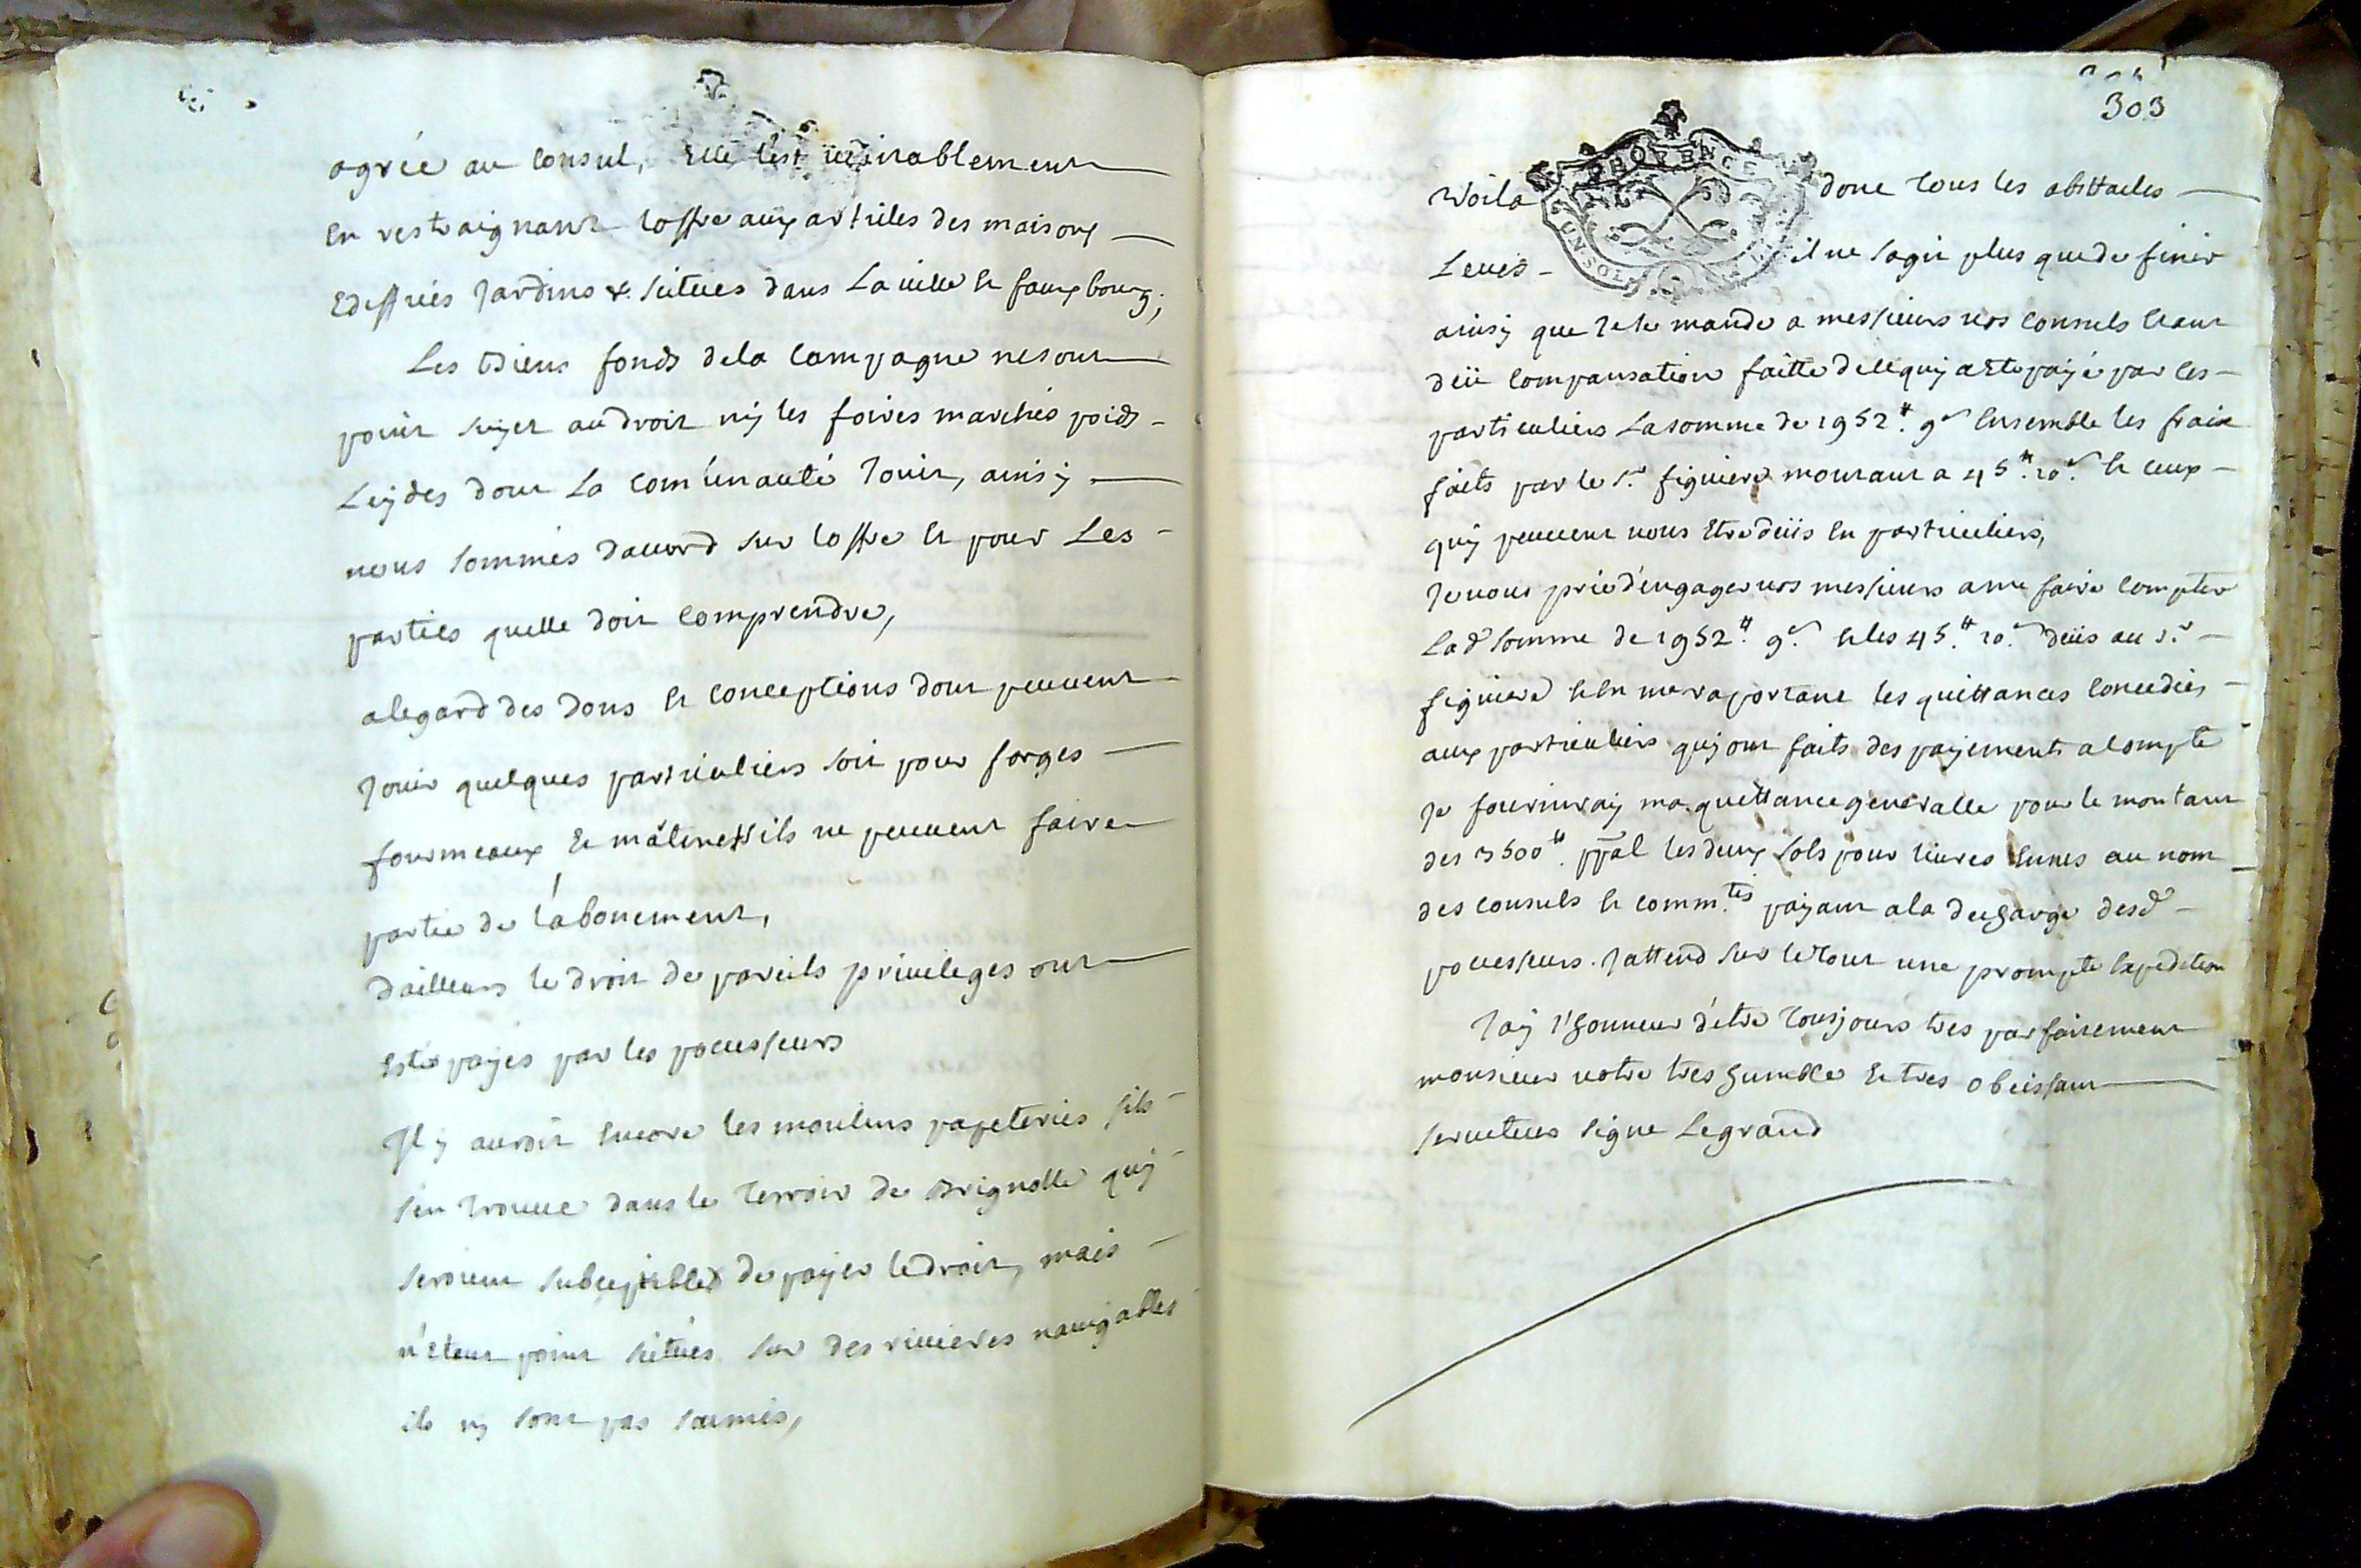 agrée au Consul, Elle l'est veritablement
En restraignant loffre aux articles des maisons
Ediffices Jardins & situés dans La ville et fauxbourg;
Les Biens fonds dela Campagne nesont
point sujet audroit ny les foires marchés poids
Leydes dont La Communauté Jouit, ainsy
nous sommes dacord sur loffre et pour Les
parties quelle doit Comprendre,
alegard des dons et Conceptions dont peuvent
Jouir quelques particuliers soit pour forges
fourneaux Et ils ne peuvent faire
partie de l'abonement,
dailleurs le droit de pareils privileges ont
Esté payés par les possesseurs
Il y auroit Encore les moulins papeteries sils
sen trouve dans le Terroir de Brignolle quy
seroient subceptibles de payer ledroit, mais
n'etent point situés sur des rivieres navigables
ils ny sont pas soumis,
303
PROVENCE
Voila donc tous les obsttacles
Levés il ne sagit plus quede finir
ainsy que Jele mande a messieurs vos Consuls Etant
deü Compansation faitte de cequy aEté payé par les
particuliers Lasomme de 1952 ₶. 9 s Ensemble les fraix
faits par le Sr. figuiere montant a 45 ₶. 10 s. et ceux
quy peuvent vous Etre deüs En particuliers,
Jevous prie d'engager vos messieurs ame faire Compter
Lad. somme de 1952 ₶. 9 s. et les 45. ₶ 10. s deüs au Sr.
figuiere et En me raportant les quittances Concedées
aux particuliers quy ont faits des payements aCompte
Je fourniray ma quittance generalle pour le montant
des 3500 ₶. ppal les deux sols pour livres au nom
des Consuls et Comm.tés payant ala decharge desd.
possesseurs. Jattend sur letout une prompte Expedition
Jay l'honneur d'etre Tousjours tres parfaitement
monsieur votre tres humble Et tres obeissant
serviteur signe Legrand